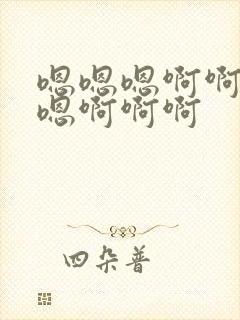 嗯嗯嗯啊啊
嗯啊啊啊
四朵普